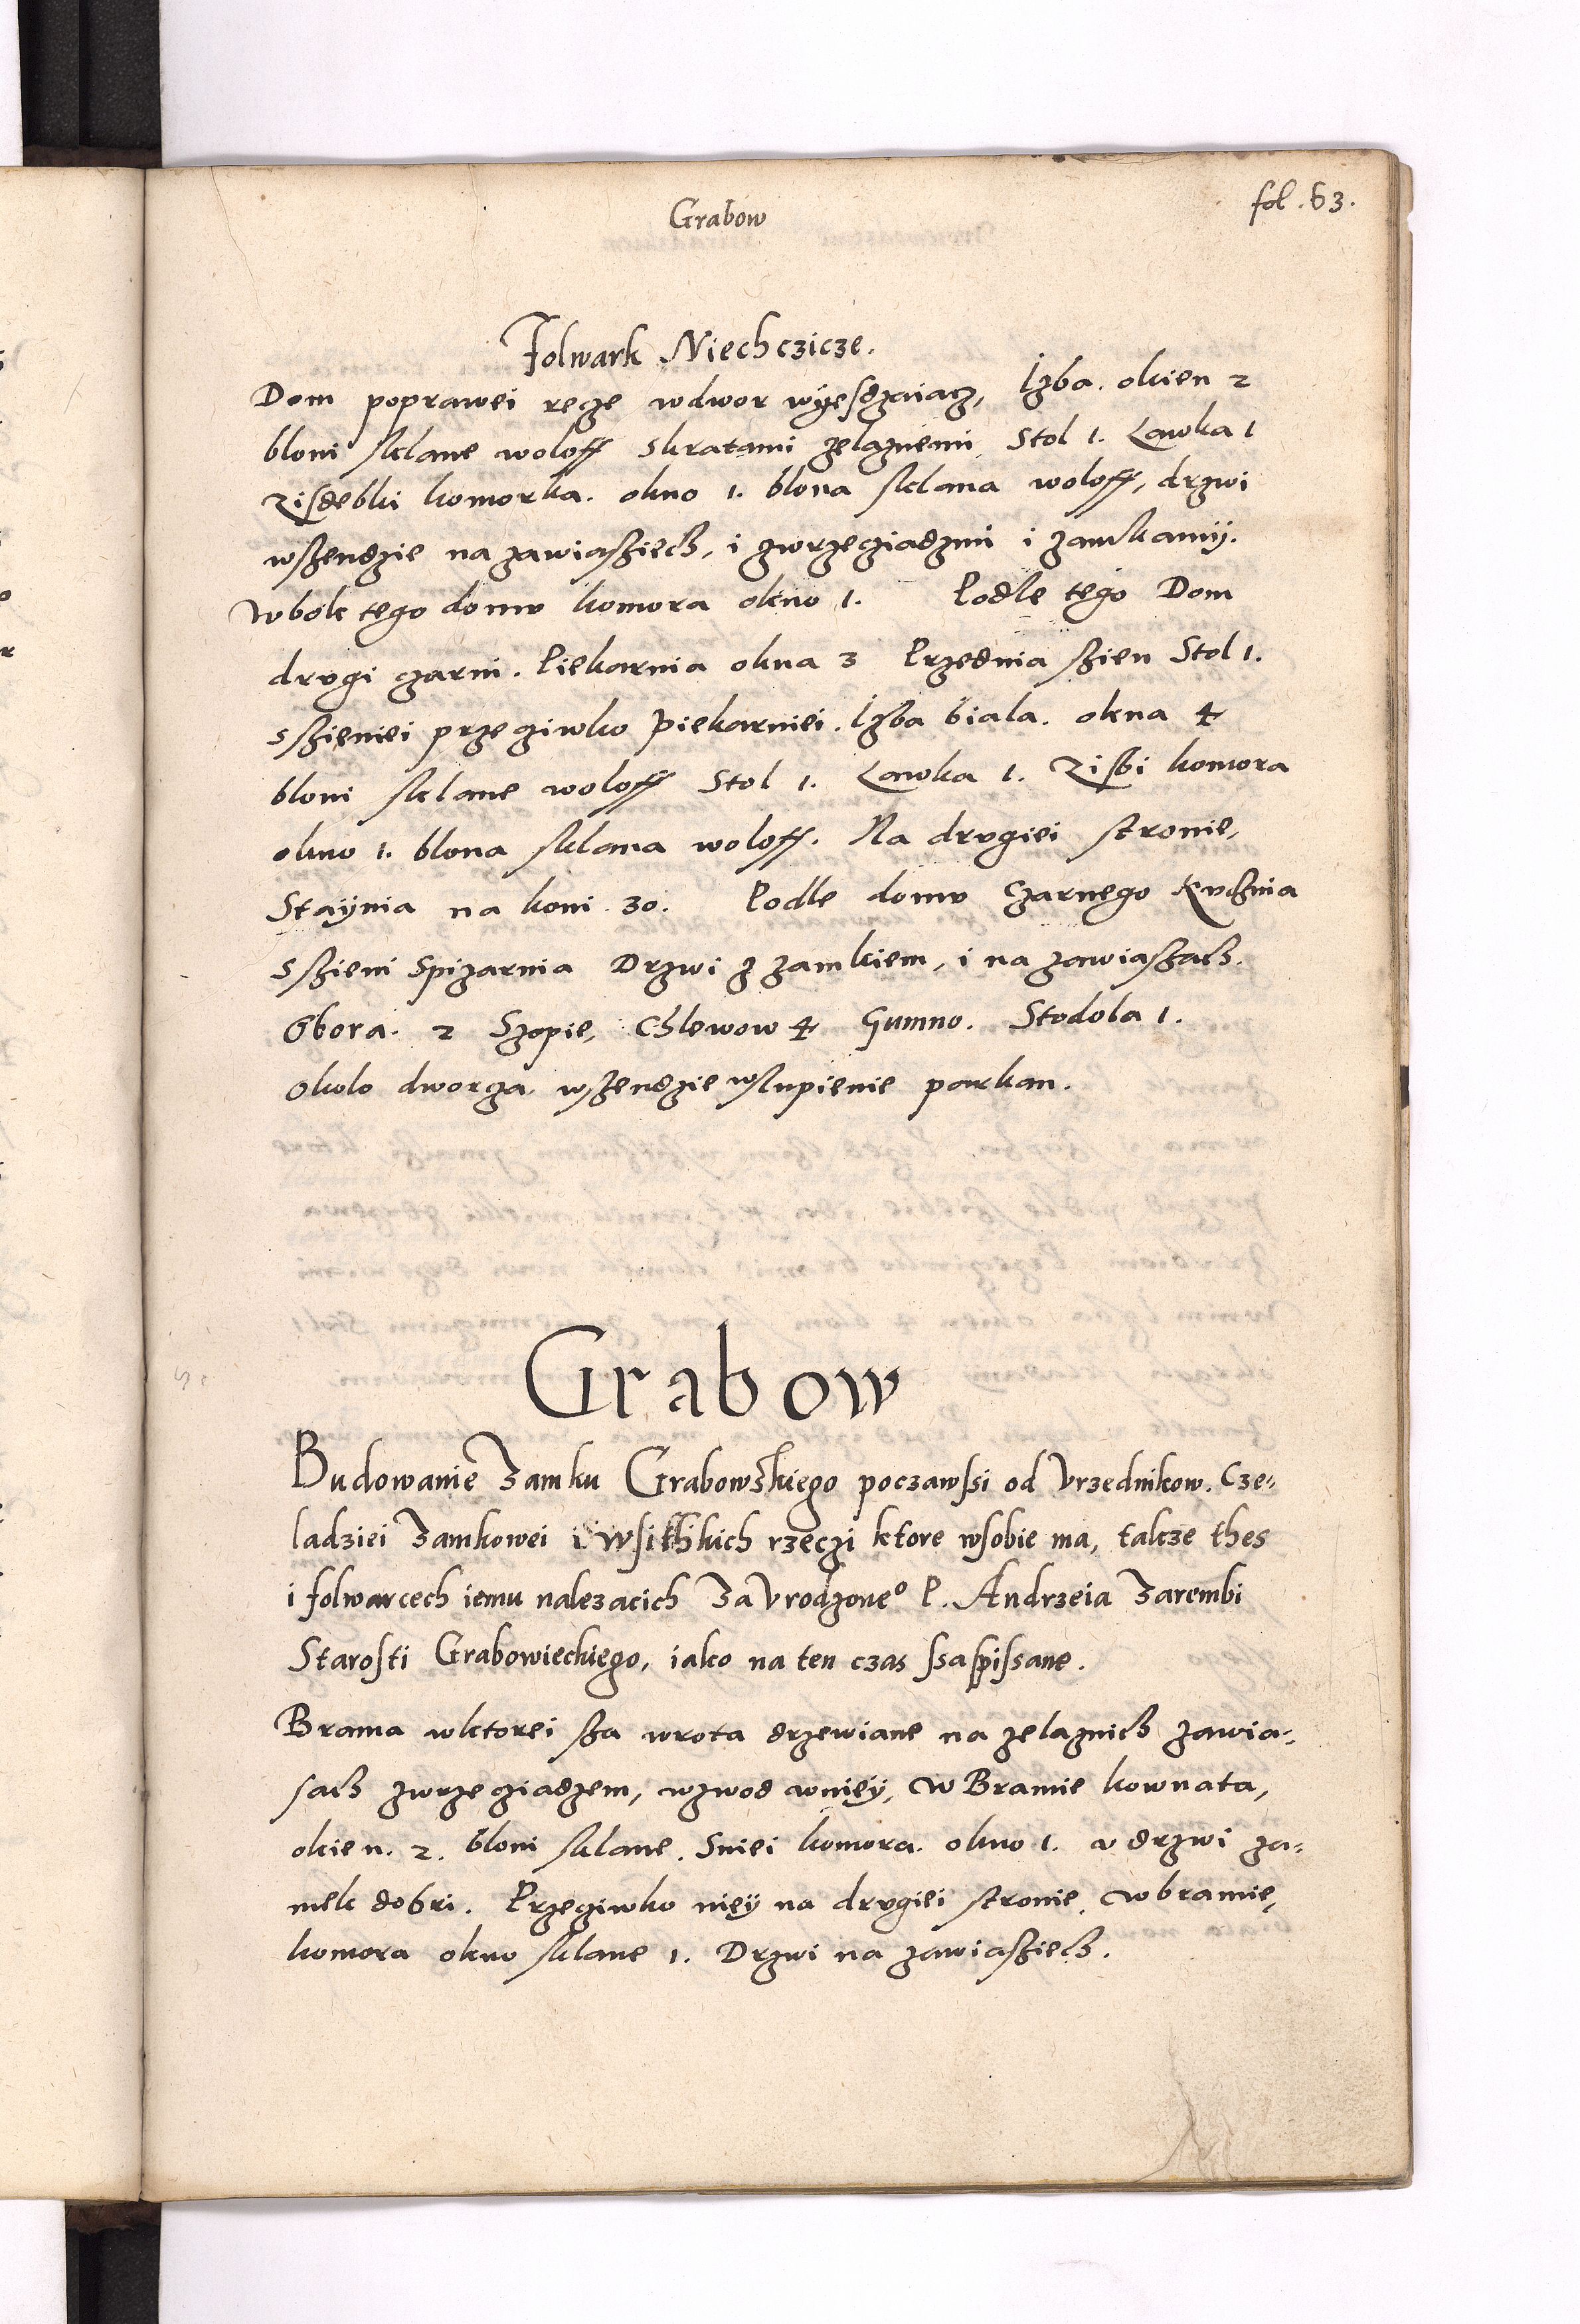 Grabow
fol. 63.
Folwark Niechczicze.
Dom poprawei recze wdwor wyesdzaiacz, Izba. okien 2
bloni sklane woloff skratami zelaznemi, Stol 1. Lawka 1
Zisdebki komorka. okno 1. blona sklana woloff, drzwi
wszendzie na zawiasziech, i zwrzecziadzmi i zamkamy.
wbok tego domv komora okno 1. Podle tego Dom
drvgi czarni. Piekarnia okna 3 Przednia szien Stol 1.
sszieniei przecziwko Piekarniei. Izba biala. okna 4
bloni sklane woloff Stol 1. Lawka 1. Zisbi komora
okno 1. blona sklana woloff. Na drvgiei stronie,
Staynia na koni 30. Podle domv Czarnego Kvchnia
sszieni Spizarnia Drzwi z zamkiem, i na zawiaszach.
Obora. 2 Szopie, Chlewow 4 Gumno. Stodola 1.
Okolo dworza wszendzie wslupienie parkan.
Grabow
Budowanie Zamku Grabowskiego poczawssi od Vrzednikow. Cze-
ladziei Zamkowei i wsitkich rzeczi ktore wsobie ma, takze thes
i folwarcech iemu nalezacich Za Vrodzoneo P. Andrzeia Zarembi
Starosti Grabowieckiego, iako na ten czas ssa spissane.
Brama wktorei sza wrota drzewiane na zelaznich zawia-
sach zwrzecziadzem, wzwod wniey, W Bramie kownata,
okien. 2. bloni sklane. Sniei komora. okno 1. v drzwi za-
mek dobri. Przecziwko niey na drvgiei stronie, w bramie,
komora okno sklane 1. Drzwi na zawiasziech.